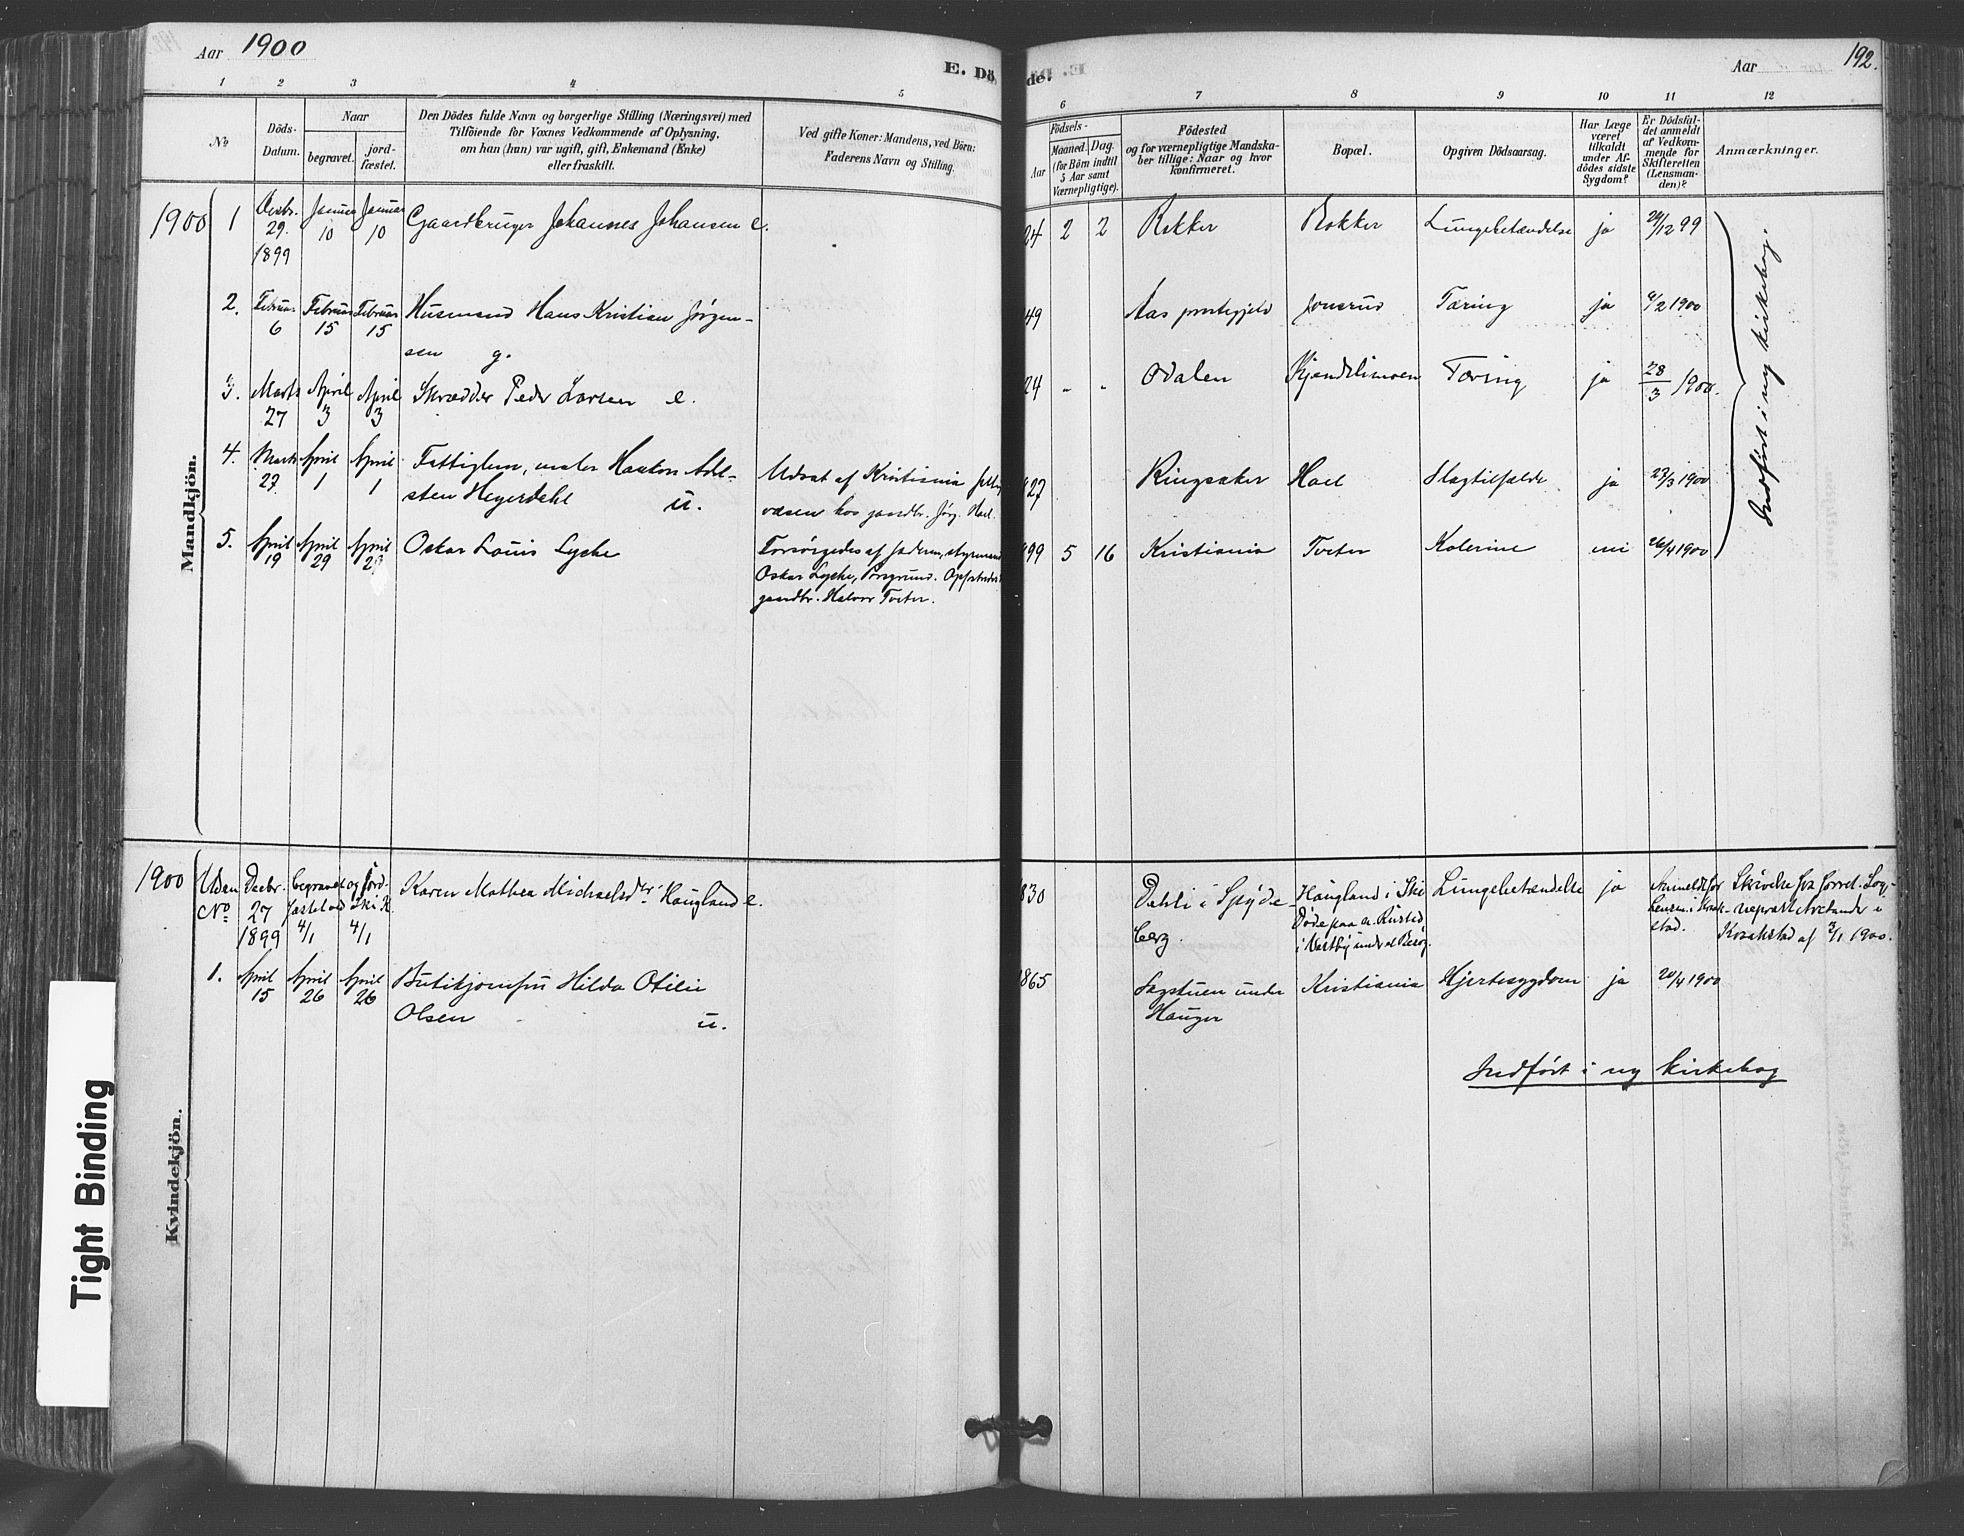 Aar 1900
E. Dö
de.
Aar
192.
1 2 3 4 5 6 7 8 9 10 11 12
No
Döds-
Datum.
Naar
begravet.
jord-
fæstet.
Den Dödes fulde Navn og borgerlige Stilling (Næringsvei) med
Tilföiende for Voxnes Vedkommende af Oplysning,
om han (hun) var ugift, gift, Enkemand (Enke)
eller fraskilt.
Ved gifte Koner: Mandens, ved Börn:
Faderens Navn og Stilling.
Födsels-
Aar
Maaned.
Dag.
(for Börn indtil
5 Aar samt
Værnepligtige).
Födested
og for værnepligtige Mandska-
ber tillige: Naar og hvor
konfirmeret.
Bopæl.
Opgiven Dödsaarsag.
Har Læge
været
tilkaldt
under Af-
dödes sidste
Sygdom?
Er Dödsfal-
det anmeldt
af Vedkom-
mende for
Skifteretten
(Lensman-
den)?
Anmærkninger.
Mandkjön.
1900 1 Decbr. 29. 1899 Januar 10 Januar 10 Gaardbruger Johannes Johansen e.
24 2 2 Rokker Rokker Lungebetændelse ja 29/12 99
2. Februar 6 Februar 15 Februar 15 Husmand Hans Kristian Jørgen-
sen g.
49 Aas prestegjeld Jonsrud Tæring ja 6/2 1900
3. Marts 27 April 3 April 3 Skrædder Peder Larsen e.
24 " " Odalen Kjendlimoen Tæring ja 28/3 1900.
4. Marts 27. April 1 April 1 Fattiglem, maler Haakon Adel-
sten Heyerdahl u.
Udsat af Kristiania fattig-
væsen hos gaardbr. Jörg. Hoel.
27 Ringsaker Hoel Slagtilfælde ja 27/3 1900
5. April 19 April 29 April 29 Oskar Louis Lyche
Forsörgedes af faderen, styrmand
Oskar Lyche, Porsgrund. Opfostredes
gaardbr. Halvor Torter.
99 5 16 Kristiania Torter Kolerine nei 26/4 1900
Indfört i ny kirkebog.
Kvindekjön.
1900 Uden No Decbr. 27 1899 begravet og jord-
fæstet ved Ski K.
4/1 4/1
Karen Mathea Michaelsdr. Haugland e.
830 Dahli i Spyde-
berg.
Haugland i Ski
Döde paa
i Vestby under et Besög.
Lungebetændelse ja
Anmeldt for
Lensm. i Kraak-
stad.
Skrivelse fra
Kraakstad af 3/1 1900.
1. April 15 April 26 April 26 Butikjomfru Hilda Otilie
Olsen u.
1865 Sagstuen under
Hauger
Kristiania Hjertesygdom ja 20/4 1900
Indfört i ny kirkebog
Tight Binding